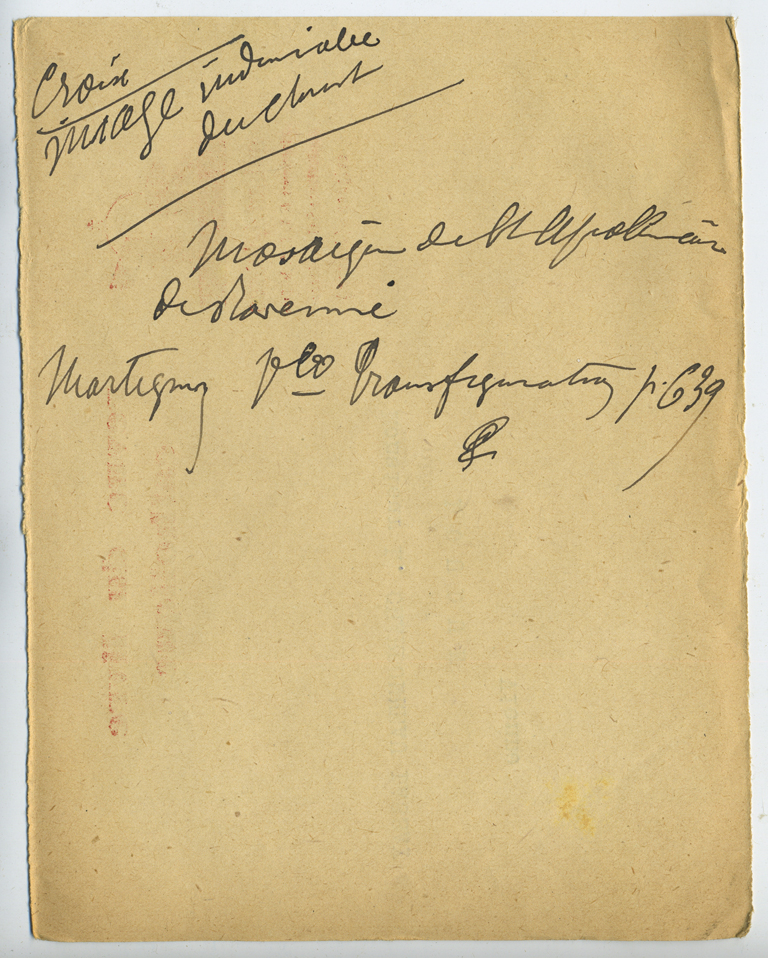 Croix
image indéniable
du Christ
Mosaïque de St Apollinaire
de Ravenne
Martigny Vco Transfiguration p. 639